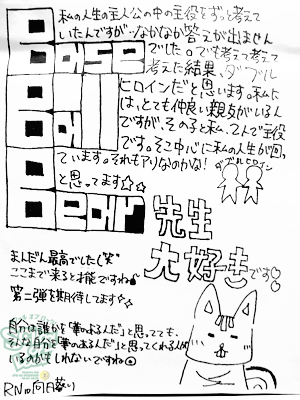 私の人生の主人公の中の主役をずっと考えて
いたんですが、なかなか答えが出ません
でした。でも考えて考えて
考えた結果、ダブル
ヒロインだと思います。私に
は、とても仲良い親友がいるん
ですが、その子と私、2人で主役
です。そこ中心に私の人生が回っ
ています。それもアリなのかな!
と思ってます☆☆
ダブルヒロイン
先生
大好きです♡
まんだん最高でした(笑)
ここまで来ると才能ですね
第二弾を期待してます☆
自分は誰かを「華のあるんだ」と思ってても、
そんな自分を「華のあるんだ」と思ってくれる人が
いるのかもしれないですね
RN⇒向日葵